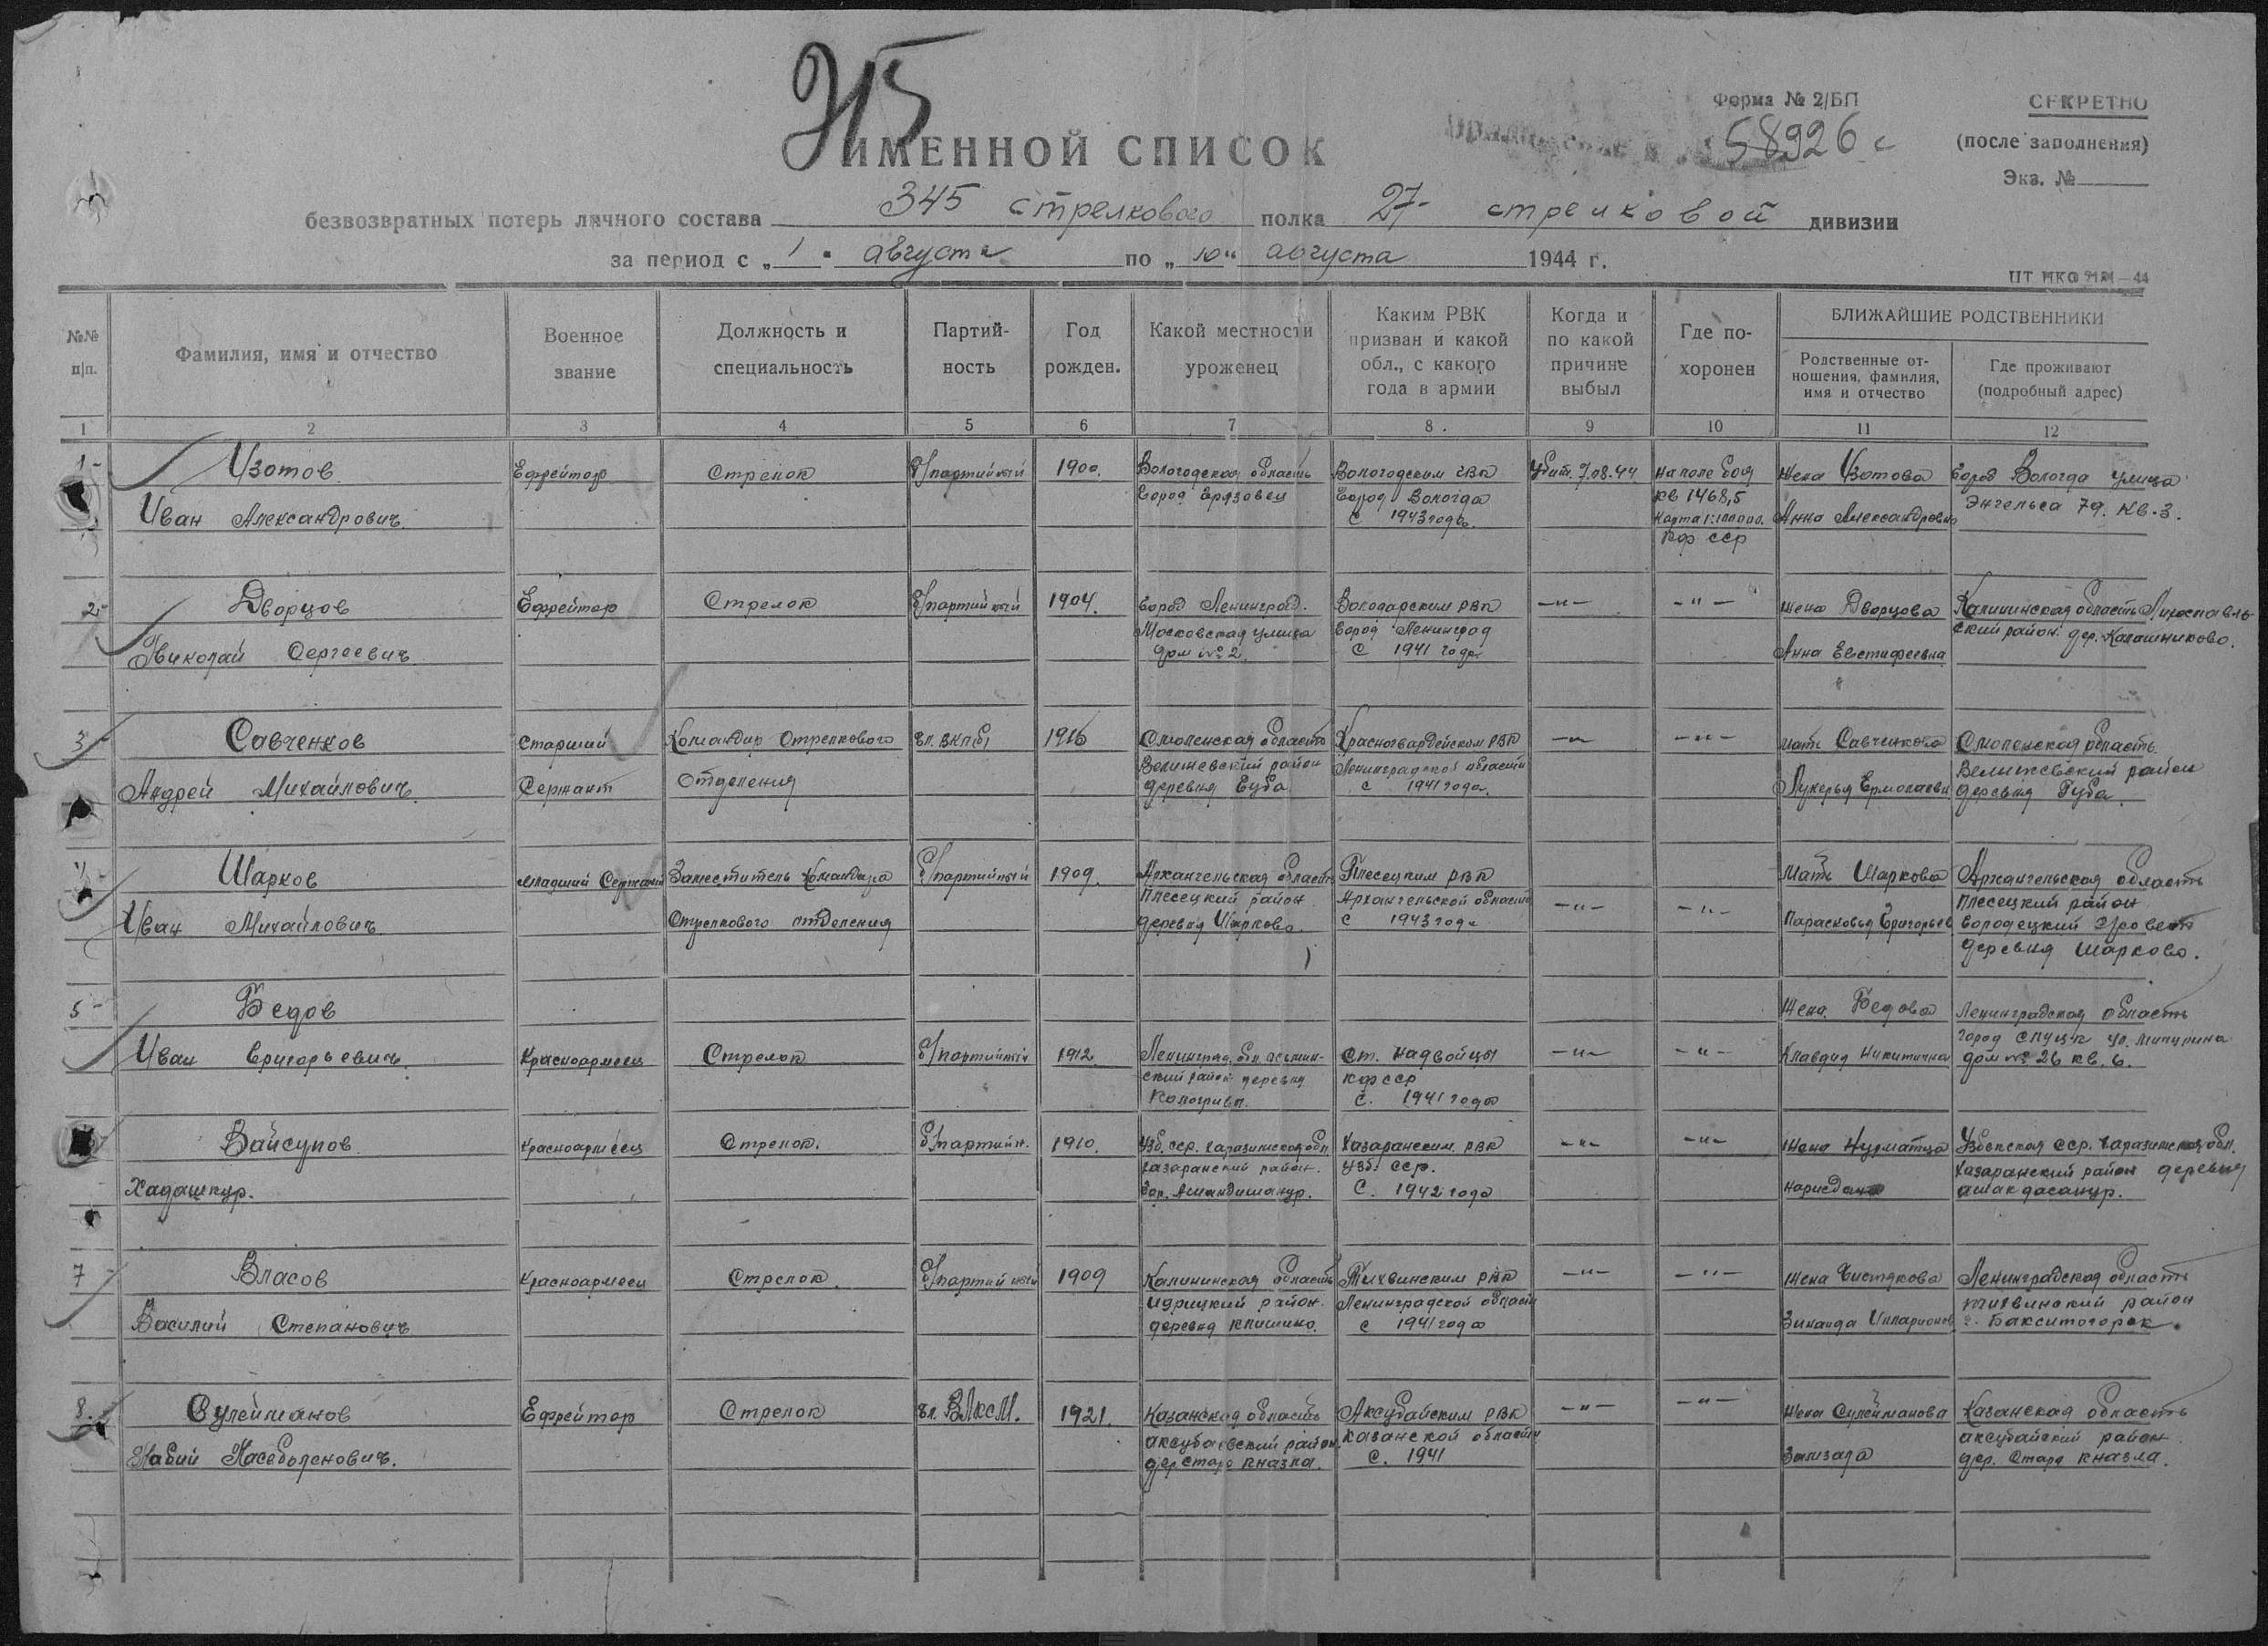 315
Форма № 2/БП
СЕКРЕТНО
58926 с
(после заполнения)
Экз. №
ИМЕННОЙ СПИСОК
безвозвратных потерь личного состава 345 стрелкового полка 27- стрелковой дивизии
за период с „1" августа по „10" августа 1944 г.
№№ п/п.
Фамилия, имя и отчество
Военное звание
Должность и специальность
Партий-ность
Год рожден.
Какой местности уроженец
Каким РВК призван и какой обл., с какого года в армии
Когда и по какой причине выбыл
Где по-хоронен
БЛИЖАЙШИЕ РОДСТВЕННИКИ
Родственные от-ношения, фамилия, имя и отчество
Где проживают (подробный адрес)
1 2 3 4 5 6 7 8. 9 10 11 12
1- Изотов Ефрейтор Стрелок б/партийный 1900. Вологодская область Вологодским ГВК Убит. 7.08.44 на поле боя жена Изотова Город Вологда улица
Иван Александрович. Город Грязовец Город Вологда кв 1468,5 Анна Александровна Энгельса 79. кв. 3.
с 1943 года. карта 1:100000.
КФ ССР
2- Дворцов Ефрейтор Стрелок б/партийный 1904. Город Ленинград. Володарским РВК -"- -"- жена Дворцова Калининская область Лихославль-
Николай Сергеевич Московская улица Город Ленинград ский район. дер. Калашниково.
дом № 2. с 1941 года Анна Евстифеевна
3- Савченков Старший Командир Стрелкового чл. ВКП(б) 1916 Смоленская область Красногвардейским РВК -"- -"- мать Савченкова Смоленская область.
Андрей Михайлович. Сержант отделения Велижевский район Ленинградской области Лукерья Ермолаевн Велижевский район
деревня Губа с 1941 года. деревня Губа.
4- Шарков младший Сержант Заместитель Командира б/партийный 1909. Архангельская область Плесецким РВК -"- -"- Мать Шаркова Архангельская область
Иван Михайлович Стрелкового отделения Плесецкий район. Архангельской области Парасковья Григорьев Плесецкий район
деревня Шарково. с 1943 года Городецкий
деревня Шарково.
5- Бедов жена. Бедова Ленинградская область
Иван Григорьевич. Красноармеец Стрелок б/партийный 1912 Ленинград. обл. осьмин- ст. Надвойцы -"- -"- Клавдия Никитична город Слуцк ул. Мичурина
ский район деревня КФ ССР дом № 26 кв. 6.
с. 1941 года
Вайсупов Красноармеец Стрелок. б/партийн. 1910. Узб. сср. Харазимская обл. Хазаранским РВК -"- -"- жена Узбекская сср. Харазимская обл.
Хадашкур. Хазаранский район. Узб. сср. Хазаранский район деревня
с. 1942 года
7 Власов Красноармеец Стрелок. б/партийный 1909 Калининская область Тихвинским РВК -"- -"- жена Чистякова Ленинградская область
Василий Степанович Идрицкий район. Ленинградской области Зинаида Илларионов тихвинский район
деревня Клишино. с 1941 года г. Бакситогорск.
8. Сулейманов Ефрейтор Стрелок чл. ВЛКСМ. 1921. Казанская область Аксубайским РВК -"- -"- жена Сулейманова Казанская область
Набий Насебъянович. аксубаевский район. Казанской области аксубайский район
дер Старо Князла. с. 1941 Зализада дер. Стара Князла.